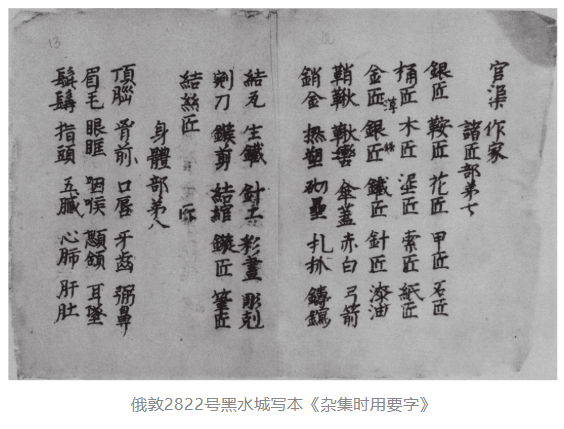 官渠 作家
諸匠部第七
銀匠 鞍匠 花匠 甲匠 石匠
桶匠 木匠 埿匠 索匠 紙匠
金匠 銀匠 鐵匠 針匠 漆油
鞘鞦 鞦轡 傘蓋 赤白 弓箭
銷金 撚塑 砌壘 扎抓
結瓦 生鐵 針工 彩畫 彫剋
剜刀 鏇剪 結綰 鏇匠 筆匠
結絲匠
身體部第八
頂腦 骨前 口唇 牙齒 鼻
眉毛 眼眶 咽喉 顋頷 耳墜
指頭 五臟 心肺 肝肚
俄敦2822号黑水城写本《杂集时用要字》